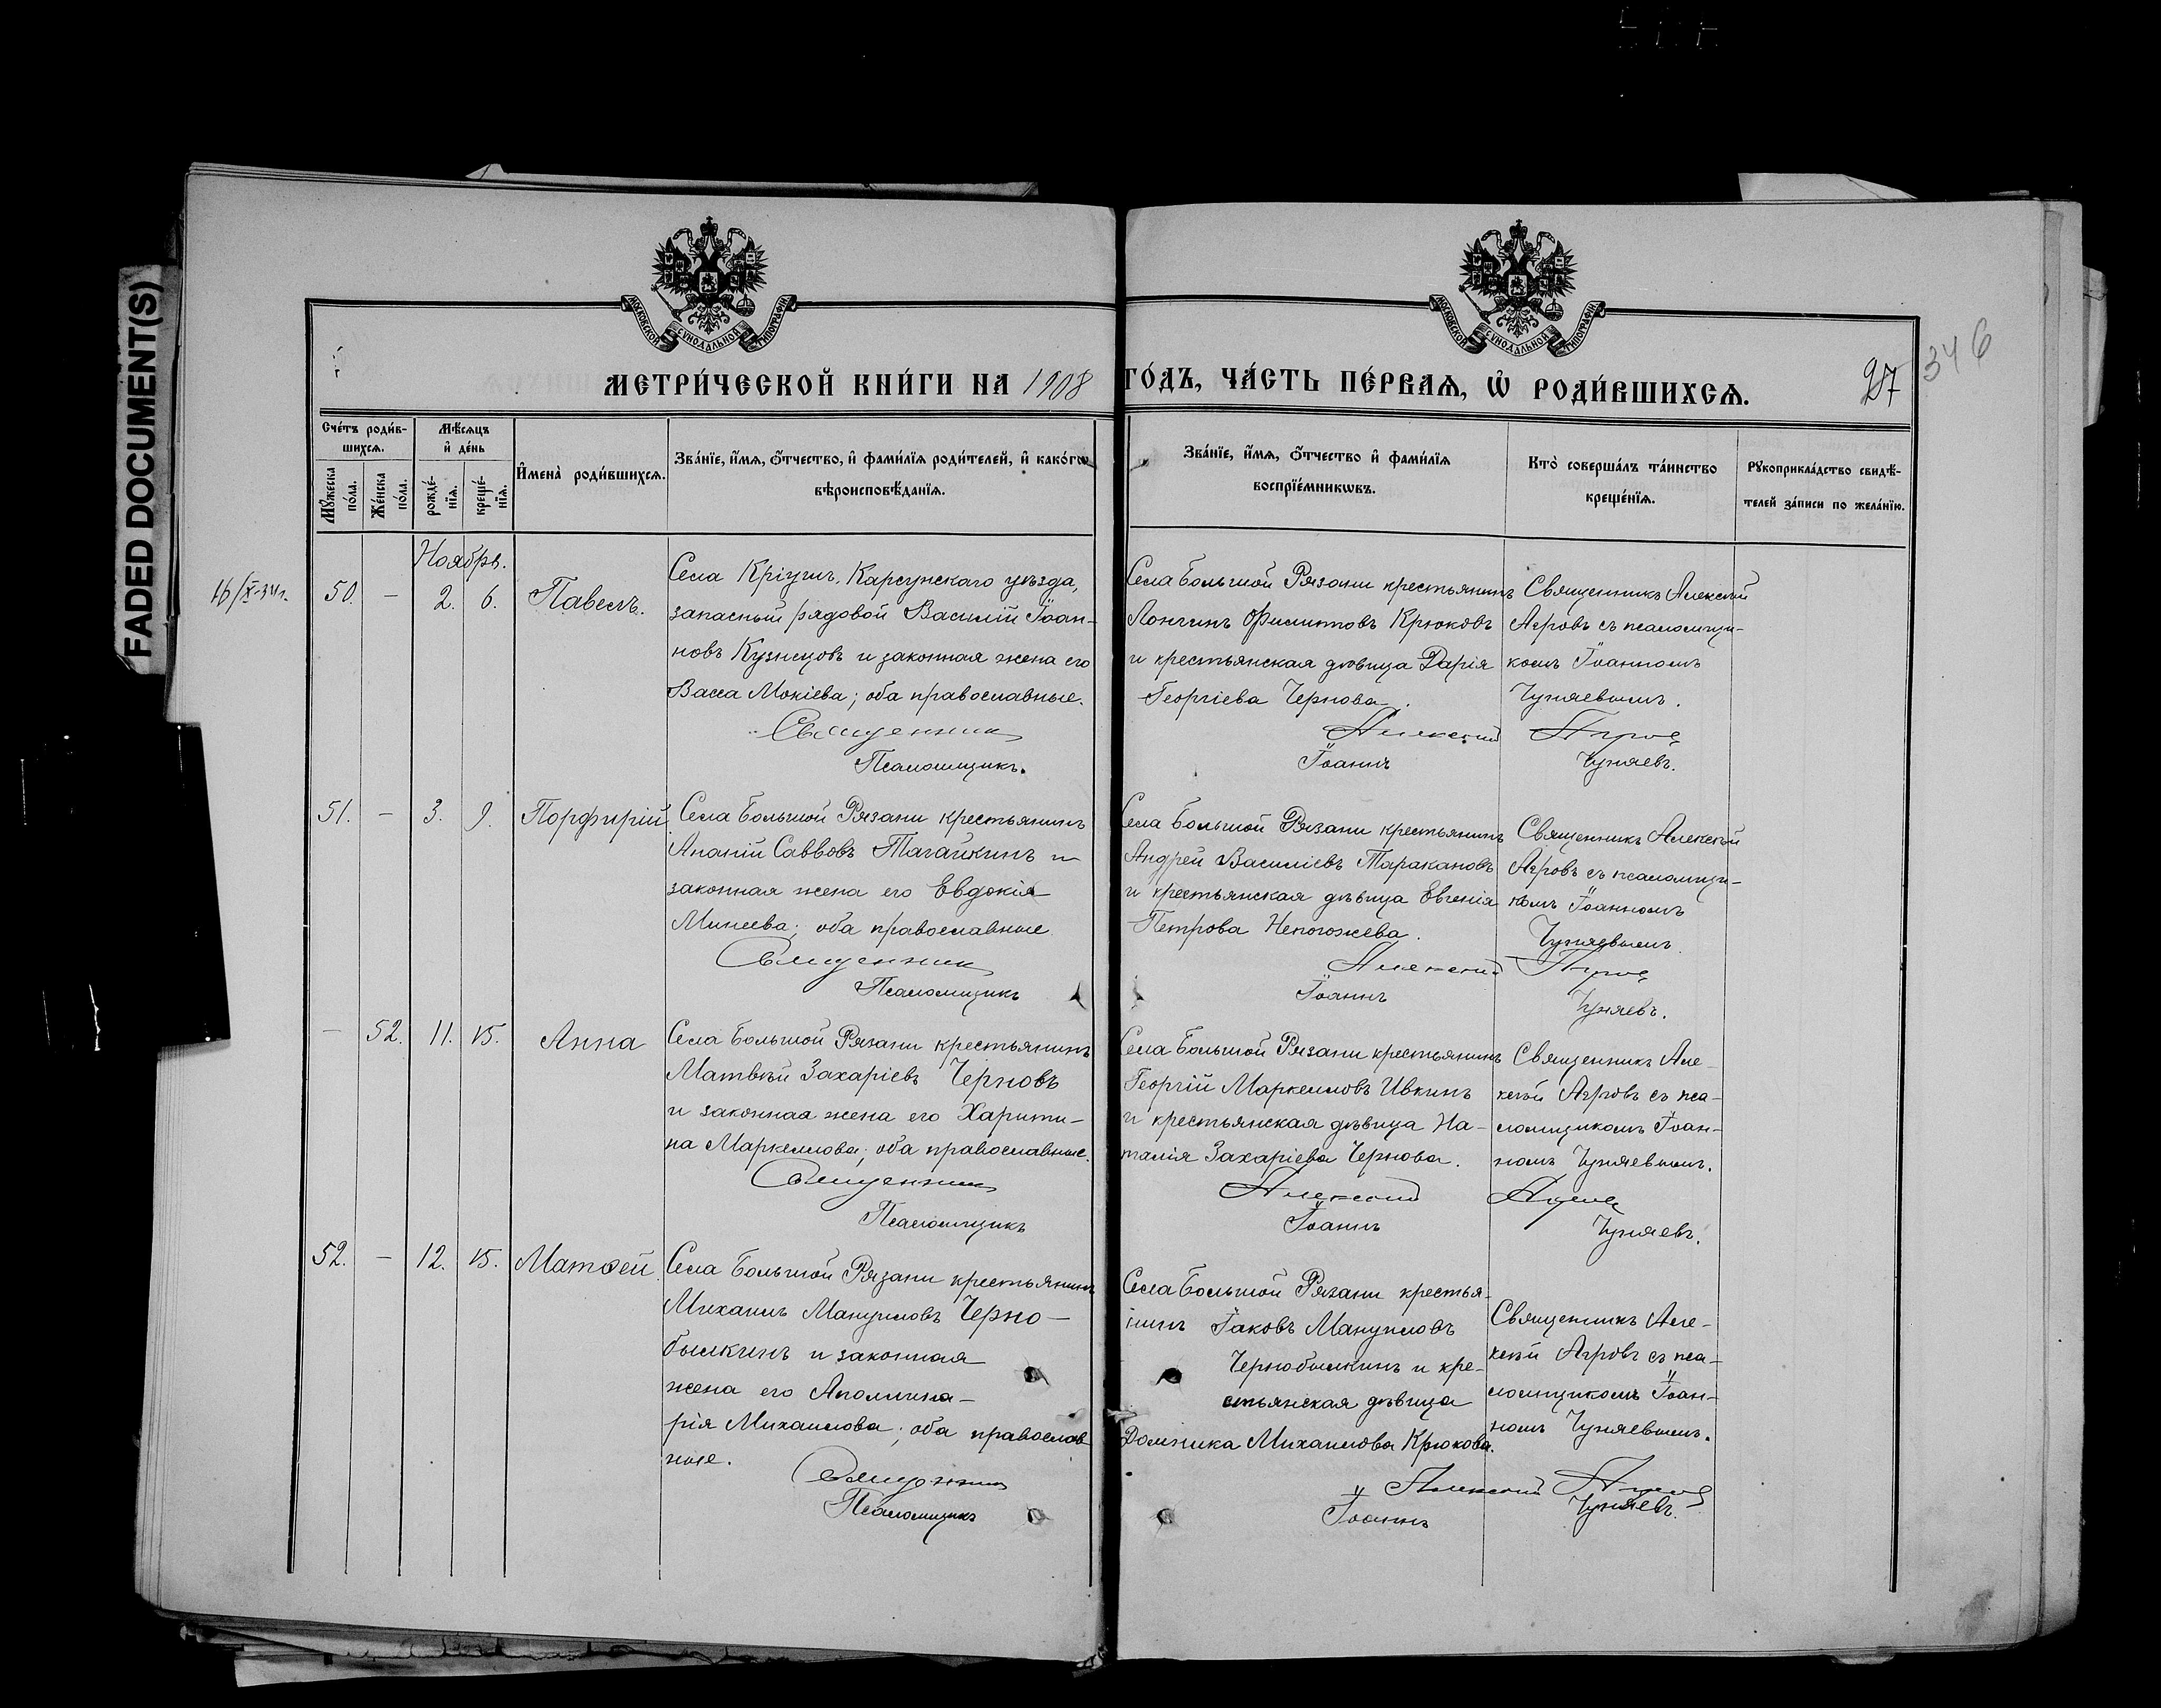 FADED DOCUMENT(S)
МОСКОВСКОЙ СУНОДАЛЬНОЙ ТИПОГРАФІИ
МОСКОВСКОЙ СУНОДАЛЬНОЙ ТИПОГРАФІИ
МЕТРИ́ЧЕСКОЙ КНИ́ГИ НА 1908
ГО́ДЪ, ЧА́СТЬ ПЕ́РВАЯ, Ѡ РОДИ́ВШИХСЯ.
27
346
Сче́тъ роди́в-
шихся.
Мѣ́сяцъ
и҆ де́нь
Мꙋ́жеска
по́ла.
Же́нска
по́ла.
рожде́-
нїя.
креще́-
нїя.
И҆мена̀ роди́вшихся.
Зва́нїе, и҆́мя, ѻ҆́тчество, и҆ фами́лїя роди́телей, и҆ како́гѡ
вѣроисповѣ́данїя.
Зва́нїе, и҆́мя, ѻ҆́тчество и҆ фами́лїя
воспрїе́мникѡвъ.
Кто̀ соверша́лъ та́инство
креще́нїя.
Рꙋкоприкла́дство свидѣ́-
телей за́писи по жела́нїю.
Ноябрь.
50. — 2. 6. Павелъ.
Села Кріуши, Карсунскаго уѣзда,
запасный рядовой Василій Іоан-
новъ Кузнецовъ и законная жена его
Васса Мокіева; оба православные.
Священник
Псаломщикъ.
Села Большой Рязани крестьянинъ
Лонгинъ Филипповъ Крюковъ
и крестьянская дѣвица Дарія
Георгіева Чернова.
Алексий
Іоаннъ
Священникъ Алексѣй
Агровъ съ псаломщи-
комъ Іоанномъ
Чуняевымъ.
Агров
Чуняевъ.
51. — 3. 9. Порфирій
Села Большой Рязани крестьянинъ
Ананій Саввовъ Тагайкинъ и
законная жена его Евдокія
Минеева; оба православные
Священник
Псаломщикъ
Села Большой Рязани крестьянинъ
Андрей Василіевъ Таракановъ
и крестьянская дѣвица Евгенія
Петрова Непогожева.
Алексий
Іоаннъ
Священникъ Алексѣй
Агровъ съ псаломщи-
комъ Іоанномъ
Чуняевымъ.
Агров
Чуняевъ.
— 52. 11. 15. Анна
Села Большой Рязани крестьянинъ
Матвѣй Захаріевъ Черновъ
и законная жена его Харити-
на Маркеллова; оба православные.
Священник
Псаломщикъ
Села Большой Рязани крестьянинъ
Георгій Маркелловъ Ивкинъ
и крестьянская дѣвица На-
талія Захаріева Чернова.
Алексий
Іоаннъ
Священникъ Але-
ксѣй Агровъ съ пса-
ломщикомъ Іоан-
номъ Чуняевымъ.
Агров
Чуняевъ.
52. — 12. 15. Матѳей
Села Большой Рязани крестьянинъ
Михаилъ Мануиловъ Черно-
былкинъ и законная
жена его Аполлина-
рія Михаилова; оба православ
ные.
Священник
Псаломщикъ
Села Большой Рязани крестья-
нинъ Іаковъ Мануиловъ
Чернобылкинъ и кре-
стьянская дѣвица
Домника Михаилова Крюкова.
Алексий
Іоаннъ
Священникъ Але-
ксѣй Агровъ съ пса-
ломщикомъ Іоан-
номъ Чуняевымъ.
Агров
Чуняевъ.